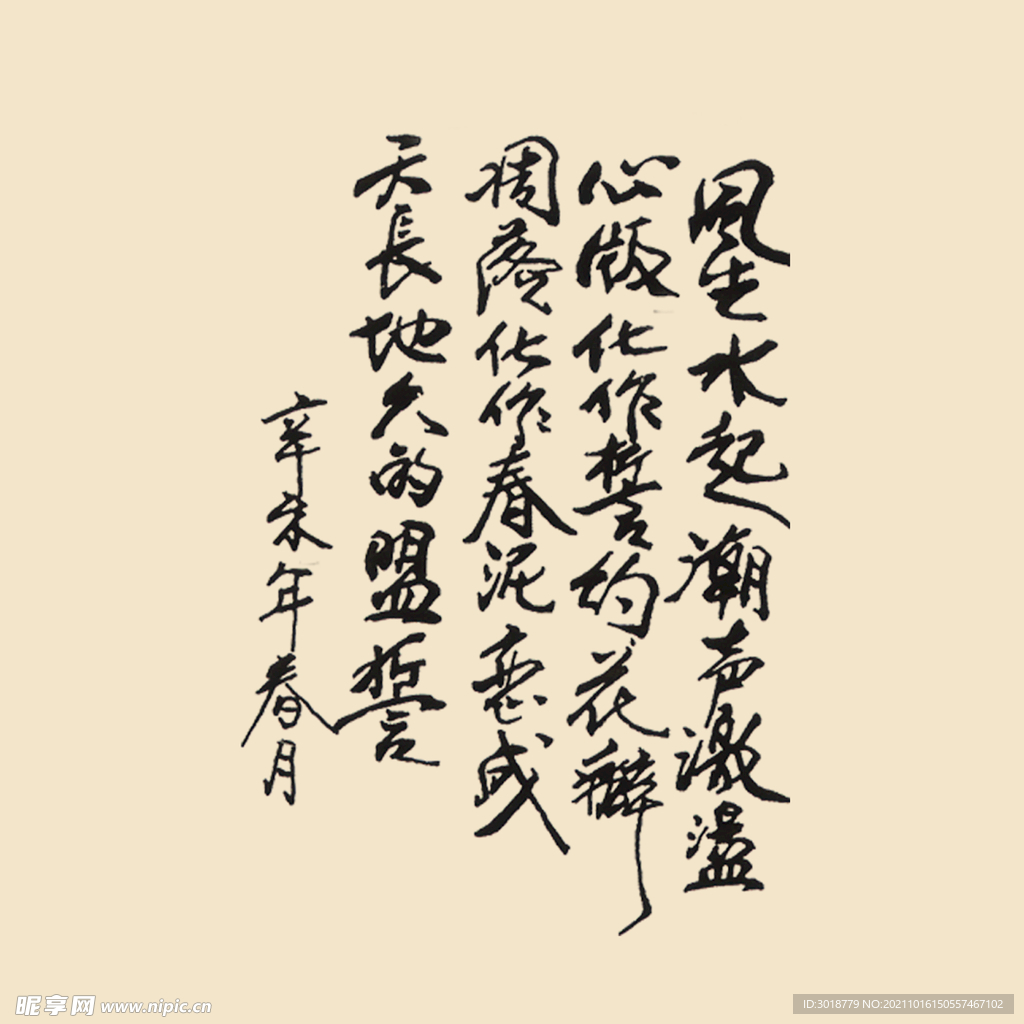 風生水起潮声激盪
心版化作誓約花瓣
凋落化作春泥恋成
天長地久的盟誓
辛未年春月
昵享网 www.nipic.cn
ID:3018779 NO:20211016150557467102